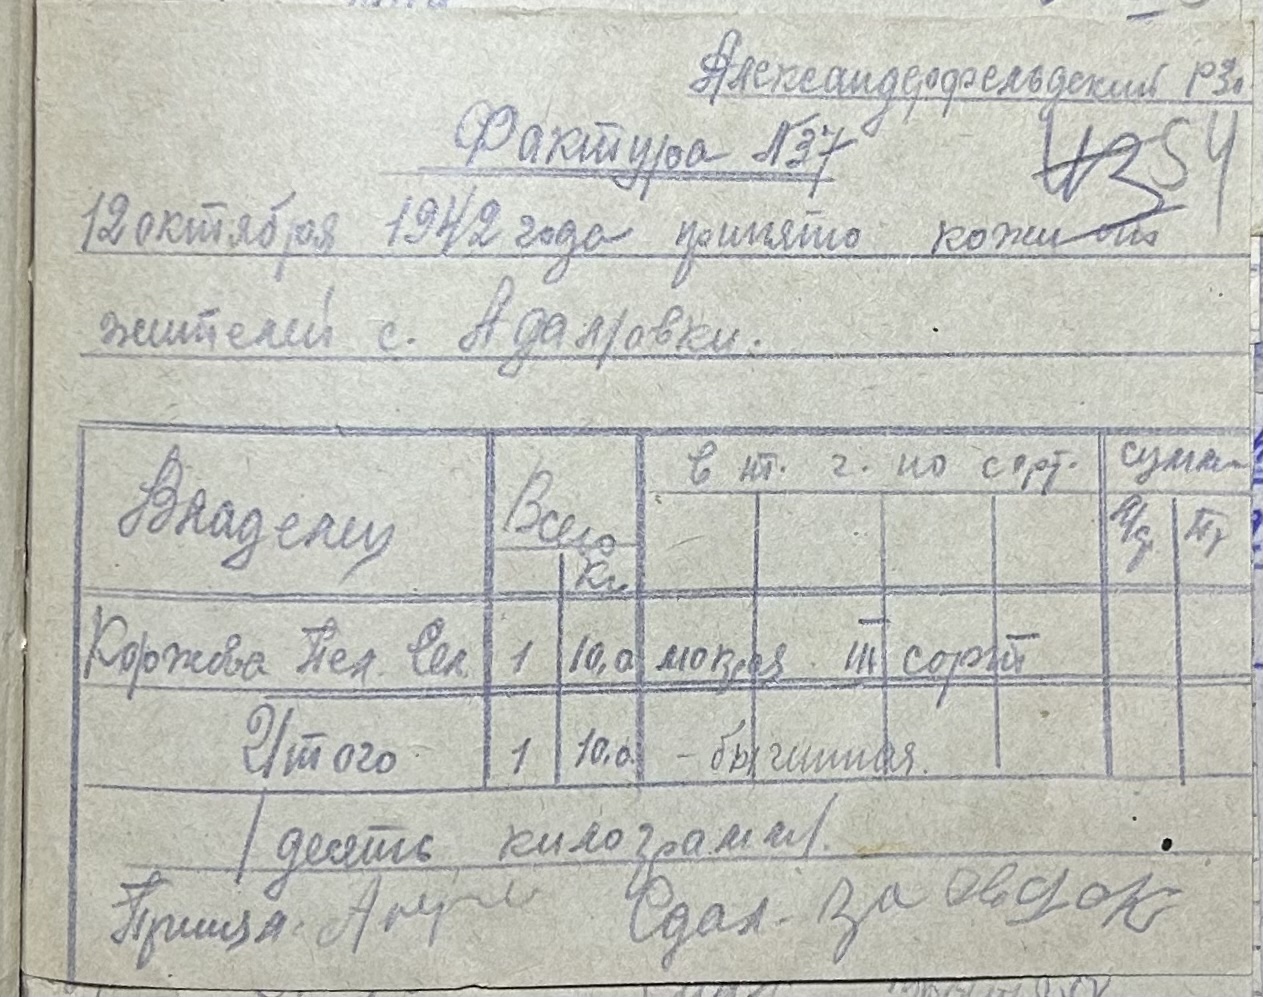 Александерфельдский РЗО
Фактура №37
54
12 октября 1942 года принято кожи от
жителей с. Адамовки.
Владелец Всего в т. ч. по сорт. сумма
кг.
Коржова Пел. Сел. 1 10,0 мокрая III сорт
Итого 1 10,0 - бычинная.
/десять килограмм/.
Принял. Сдал.